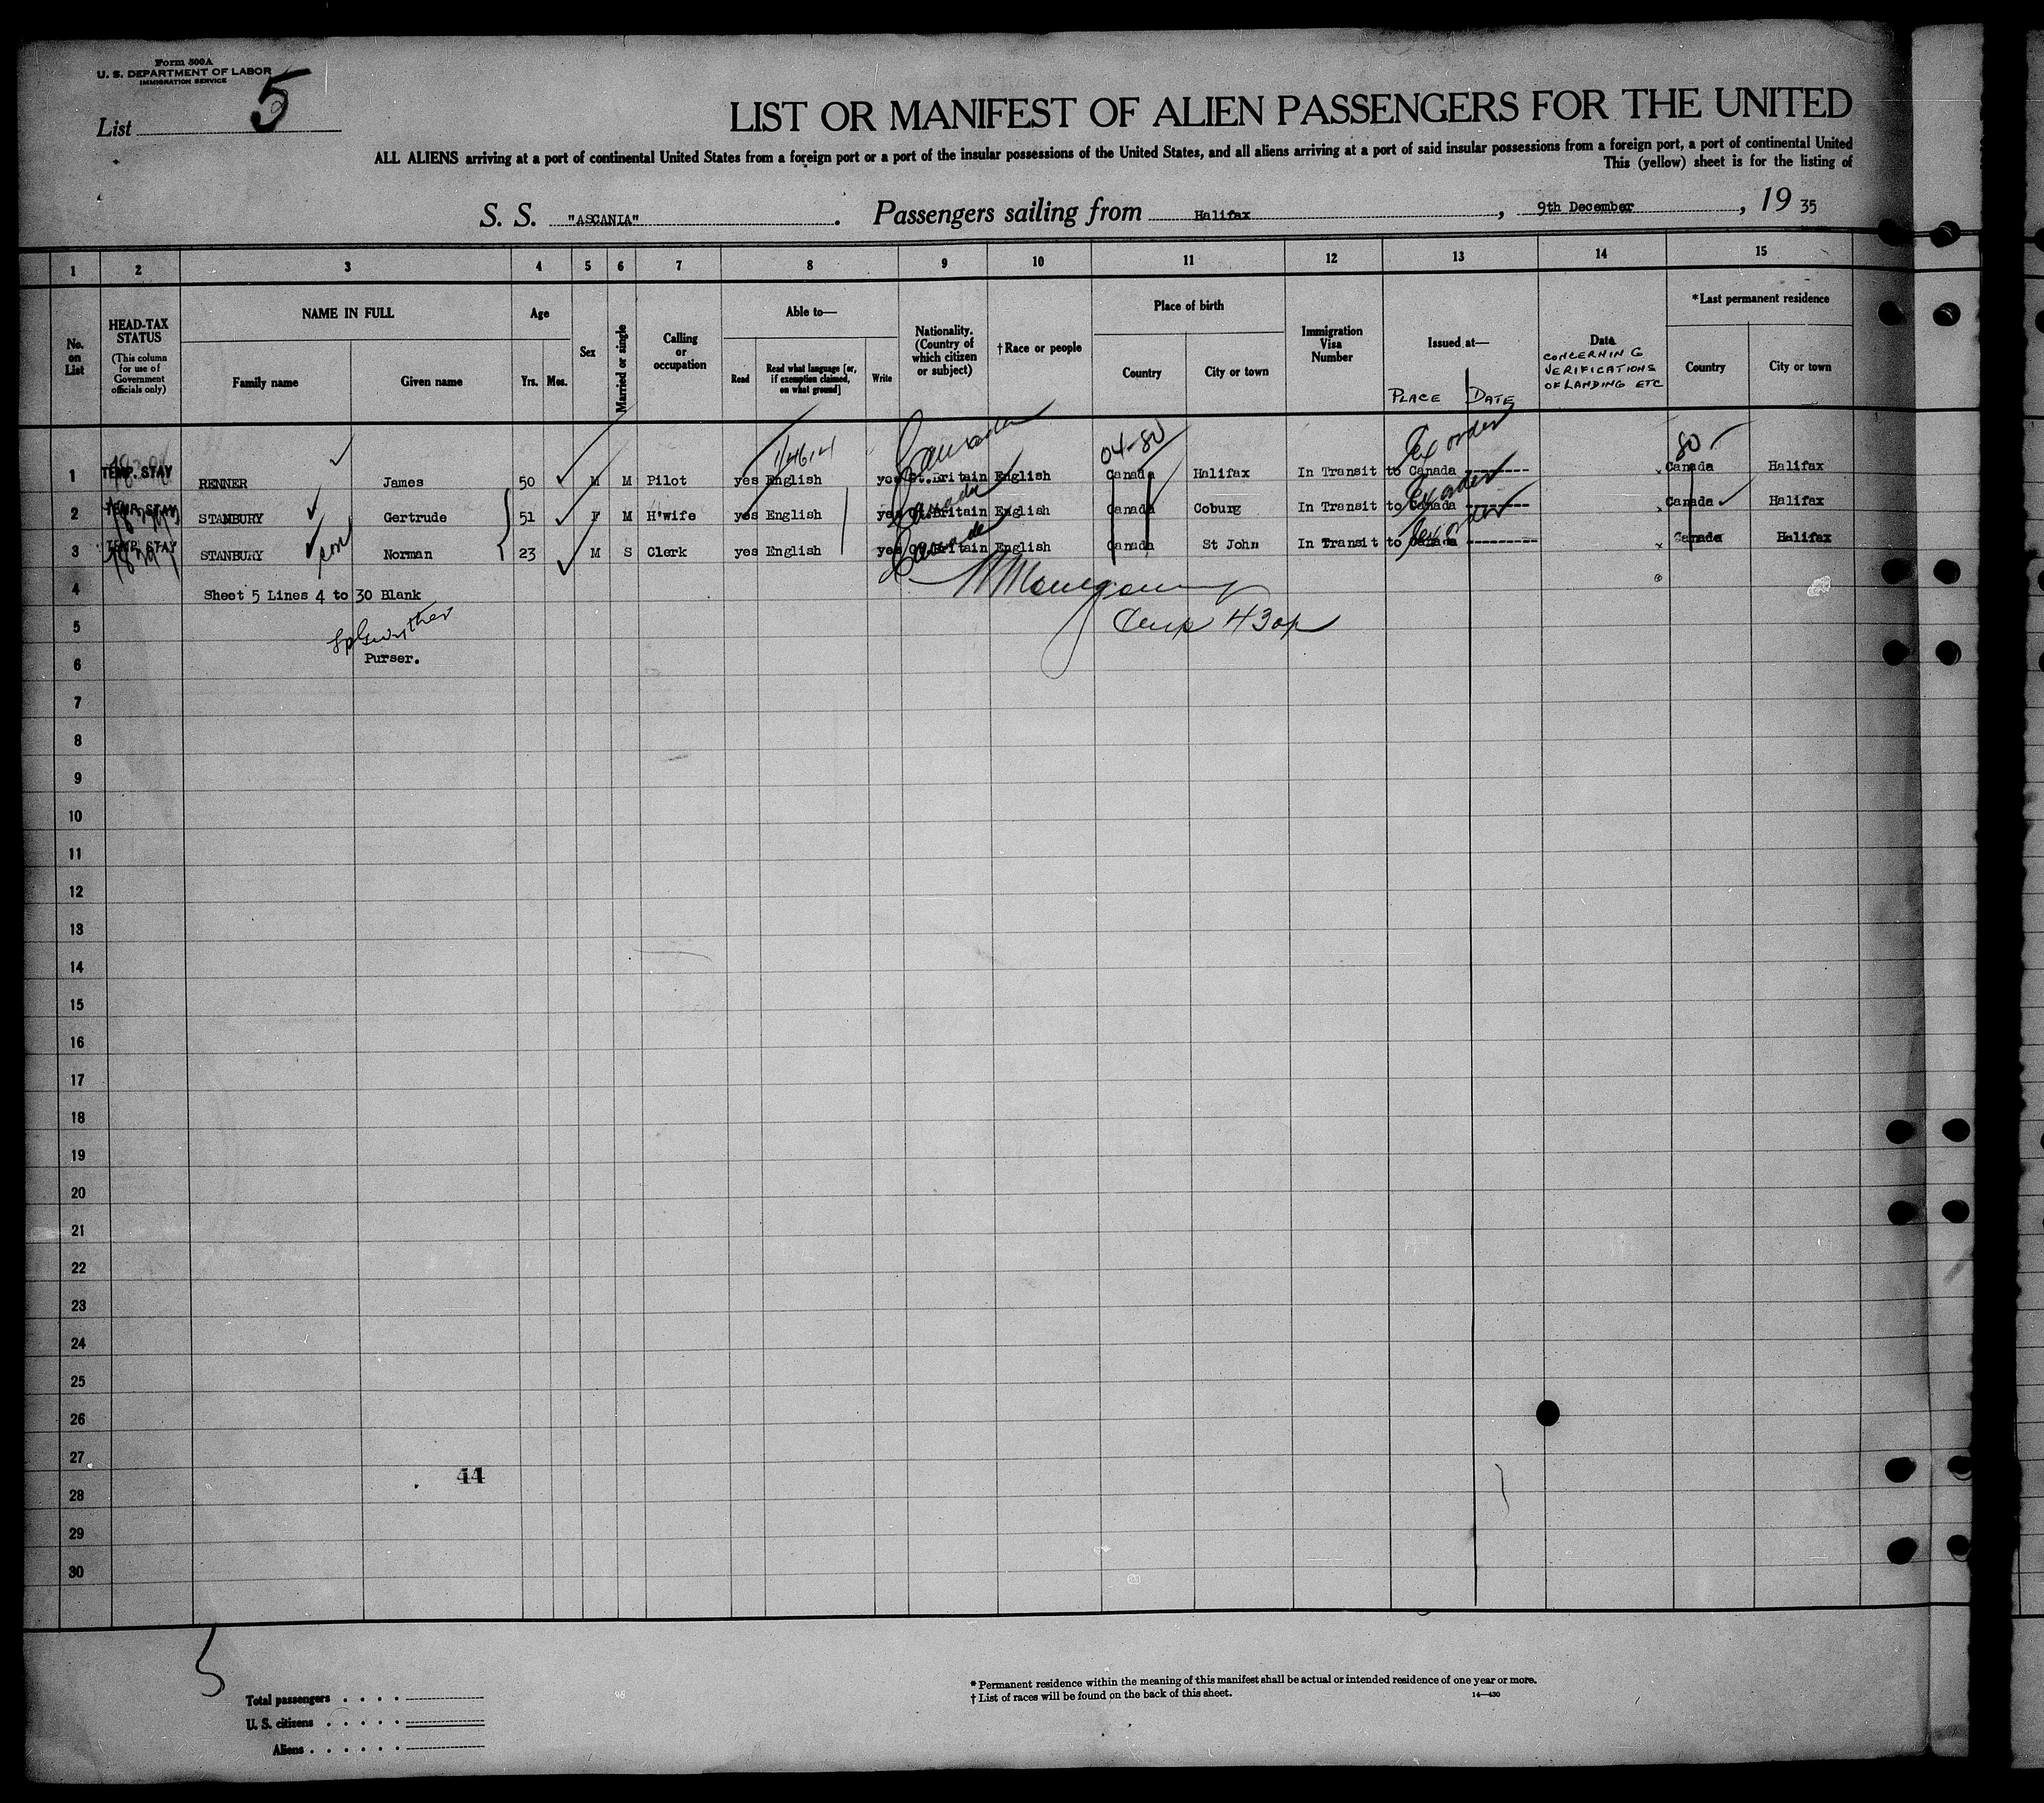 Form 500A
U. S. DEPARTMENT OF LABOR
IMMIGRATION SERVICE
List 5
LIST OR MANIFEST OF ALIEN PASSENGERS FOR THE UNITED
ALL ALIENS arriving at a port of continental United States from a foreign port or a port of the insular possessions of the United States, and all aliens arriving at a port of said insular possessions from a foreign port, a port of continental United
This (yellow) sheet is for the listing of
S. S. "ASCANIA". Passengers sailing from Halifax, 9th December, 19 35
1 2 3 4 5 6 7 8 9 10 11 12 13 14 15
No. on List
HEAD-TAX STATUS
(This column for use of Government officials only)
NAME IN FULL
Family name
Given name
Age
Yrs. Mos.
Sex
Married or single
Calling or occupation
Able to—
Read
Read what language [or, if exemption claimed, on what ground]
Write
Nationality. (Country of which citizen or subject)
†Race or people
Place of birth
Country
City or town
Immigration Visa Number
Issued at—
PLACE DATE
Data
CONCERNING VERIFICATIONS OF LANDING ETC
*Last permanent residence
Country
City or town
Canada 04-80 80
1 TEMP. STAY RENNER James 50 M M Pilot yes English yes Gt.Britain English Canada Halifax In Transit to Canada Canada Halifax
Canada
2 TEMP. STAY STANBURY Gertrude 51 F M H'wife yes English yes Gt.Britain English Canada Coburg In Transit to Canada Canada Halifax
Canada
3 TEMP. STAY STANBURY son Norman 23 M S Clerk yes English yes Gt.Britain English Canada St John In Transit to Canada Canada Halifax
4 Sheet 5 Lines 4 to 30 Blank
5
6 Purser.
7
8
9
10
11
12
13
14
15
16
17
18
19
20
21
22
23
24
25
26
27
44
28
29
30
5
Total passengers . . . .
U. S. citizens . . . . .
Aliens . . . . . .
* Permanent residence within the meaning of this manifest shall be actual or intended residence of one year or more.
† List of races will be found on the back of this sheet.
14—430